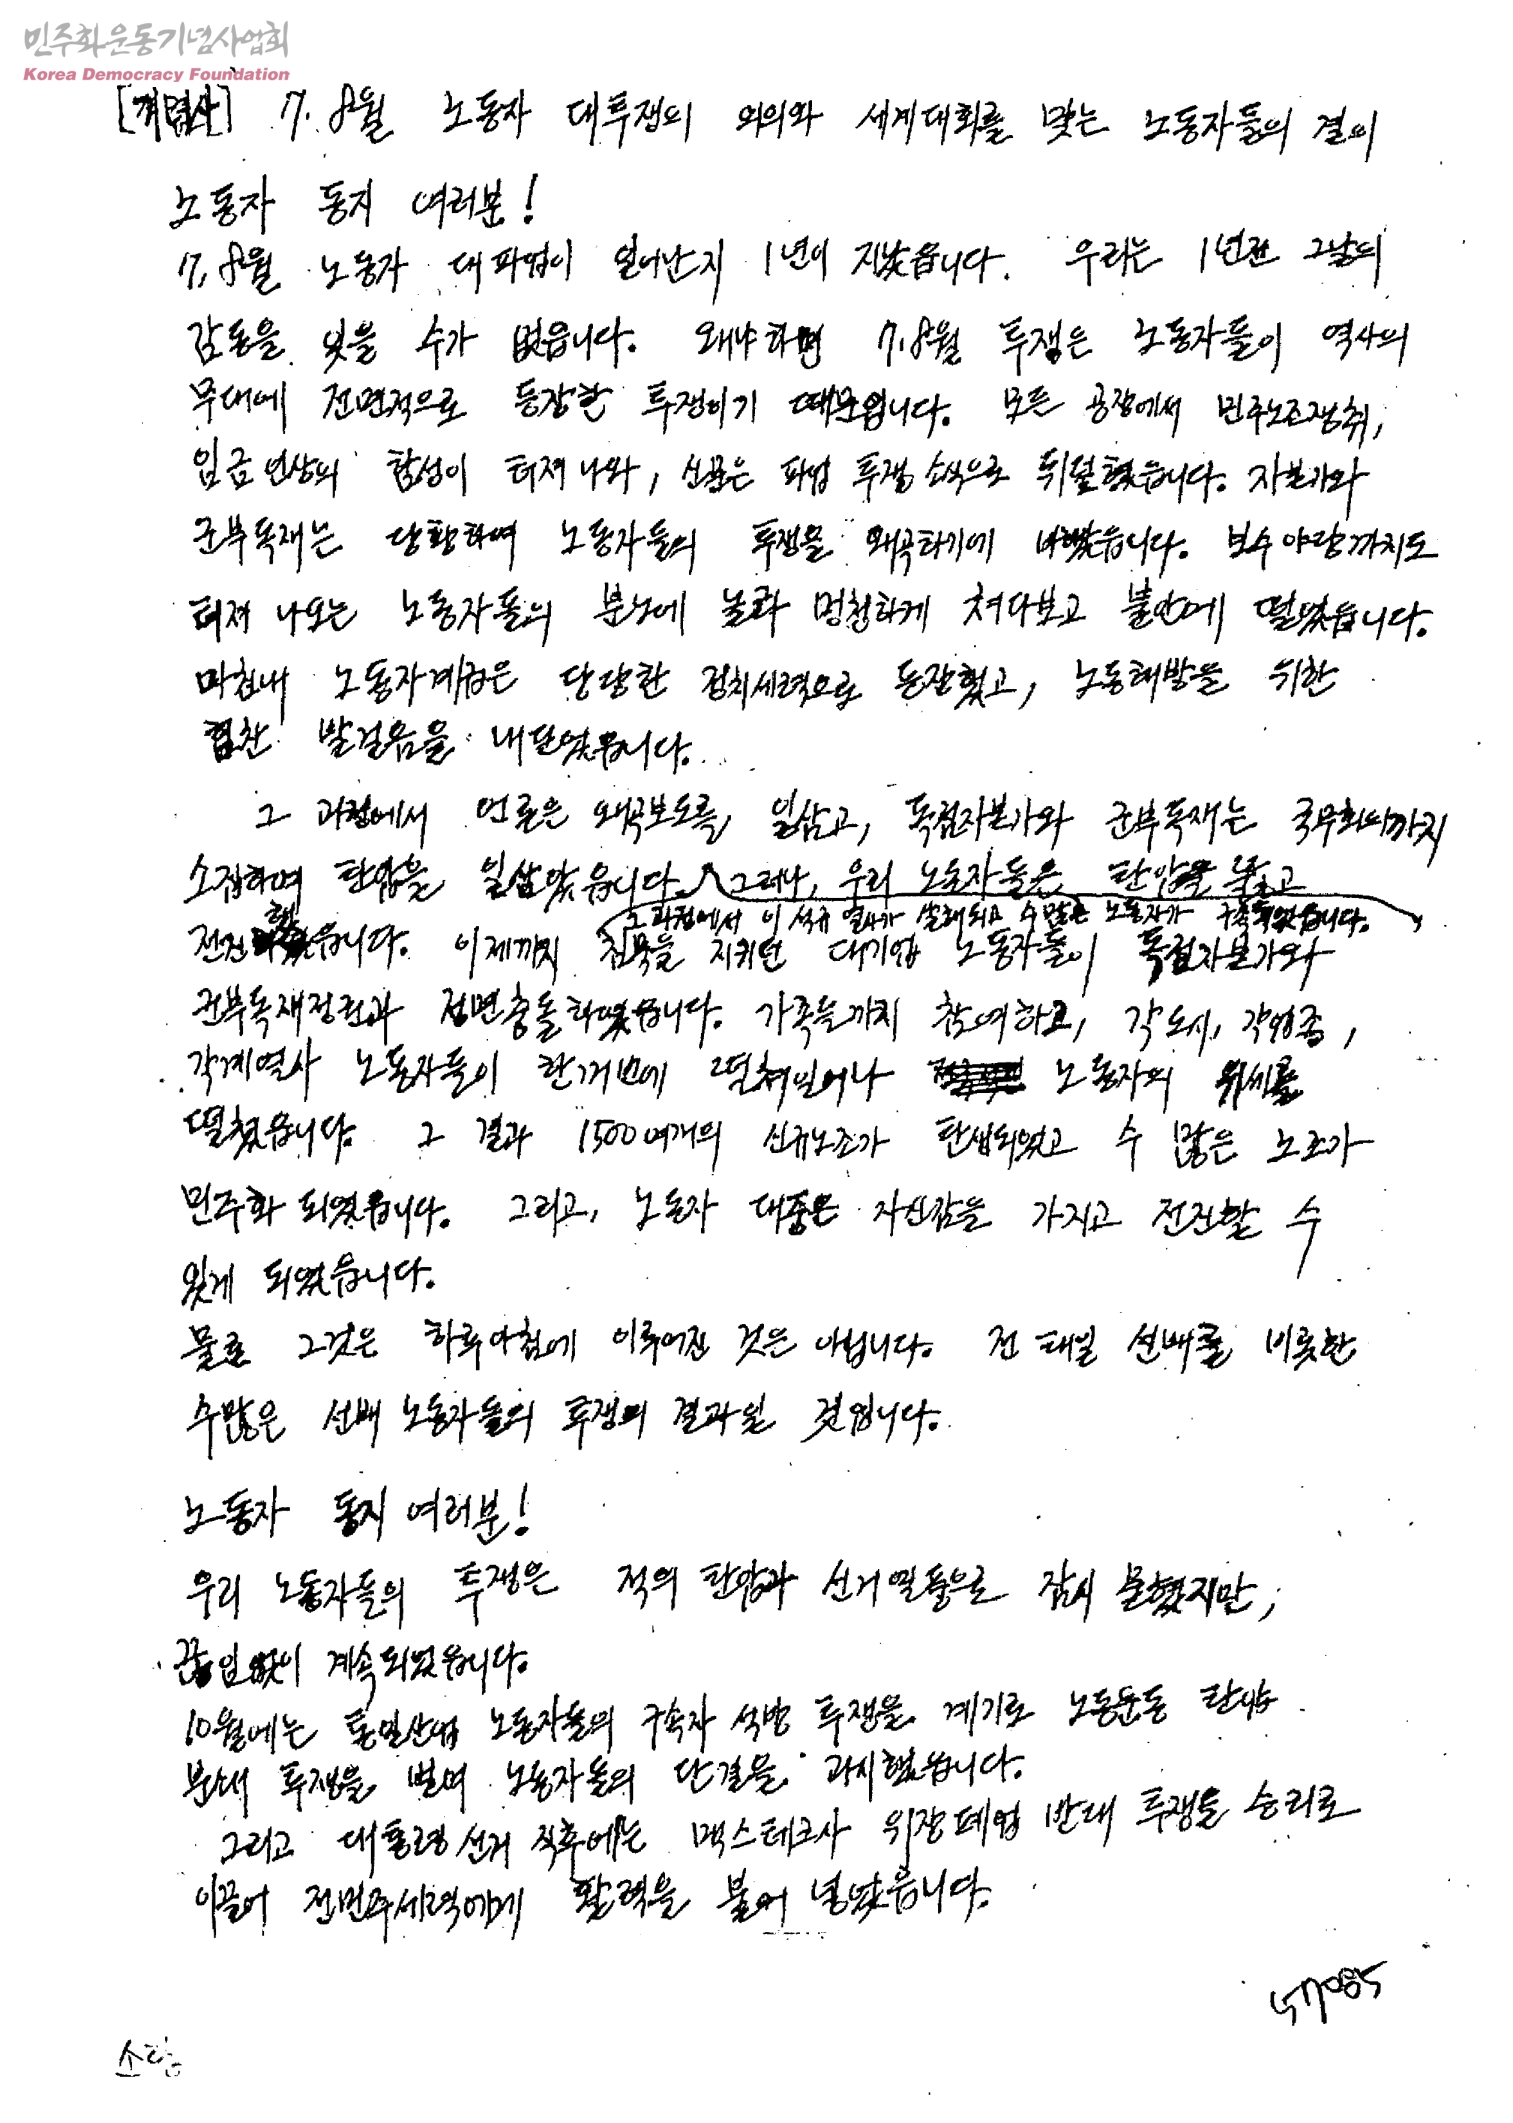 민주화운동기념사업회
Korea Democracy Foundation
[개념사] 7. 8월 노동자 대투쟁의 의의와 세계대회를 맞는 노동자들의 결의
노동자 동지 여러분!
7, 8월 노동자 대파업이 일어난지 1년이 지났읍니다. 우리는 1년전 그날의
감동을 잊을 수가 없읍니다. 왜냐하면 7.8월 투쟁은 노동자들이 역사의
무대에 전면적으로 등장한 투쟁이기 때문입니다. 모든 공장에서 민주노조쟁취,
임금인상의 함성이 터져나와, 신문은 파업 투쟁 소식으로 뒤덮혔읍니다. 자본가와
군부독재는 당황하여 노동자들의 투쟁을 왜곡하기에 바빴읍니다. 보수야당까지도
터져 나오는 노동자들의 분노에 놀라 멍청하게 쳐다보고 불안에 떨었읍니다.
마침내 노동자계급은 당당한 정치세력으로 등장했고, 노동해방을 위한
힘찬 발걸음을 내딛었읍니다.
그 과정에서 언론은 왜곡보도를 일삼고, 독점자본가와 군부독재는 국무회의까지
소집하며 탄압을 일삼았읍니다. 그러나, 우리 노동자들은 탄압을 뚫고
그 과정에서 이석규 열사가 살해되고 수많은 노동자가 구속되었읍니다.
전진했읍니다. 이제까지 침묵을 지키던 대기업 노동자들이 독점자본가와
군부독재정권과 정면충돌하였읍니다. 가족들까지 참여하고, 각도시, 각업종,
각계열사 노동자들이 한꺼번에 떨쳐일어나 노동자의 위세를
떨쳤읍니다. 그 결과 1500여개의 신규노조가 탄생되었고 수 많은 노조가
민주화 되었읍니다. 그리고, 노동자 대중은 자신감을 가지고 전진할 수
있게 되었읍니다.
물론 그것은 하루아침에 이루어진 것은 아닙니다. 전태일 선배를 비롯한
수많은 선배 노동자들의 투쟁의 결과일 것입니다.
노동자 동지 여러분!
우리 노동자들의 투쟁은 적의 탄압과 선거열풍으로 잠시 주춤했지만,
끊임없이 계속되었읍니다.
10월에는 통일산업 노동자들의 구속자 석방 투쟁을 계기로 노동운동 탄압
분쇄 투쟁을 벌여 노동자들의 단결을 과시했읍니다.
그리고 대통령선거 직후에는 맥스테크사 위장폐업 반대 투쟁을 승리로
이끌어 전민주세력에게 활력을 불어 넣었읍니다.
57085